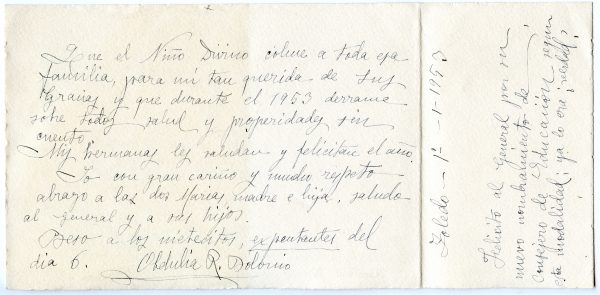 Que el Niño Divino colme a toda esa
familia, para mi tan querida de sus
Gracias y que durante el 1953 derrame
sobre todos salud y properidades sin
cuento.
Mis hermanas les saludan y felicitan el año.
Yo con gran cariño y mucho respeto
abrazo a las dos Marias, madre e hija, saludo
al General y a sus hijos.
Beso a los nietecitos, expectantes del
dia 6. Obdulia R.
Toledo - 1º - 1 - 1953
Felicito al General por su
nuevo nombramiento de
consejero de Educación, según
esta modalidad; ya lo era ¿verdad?